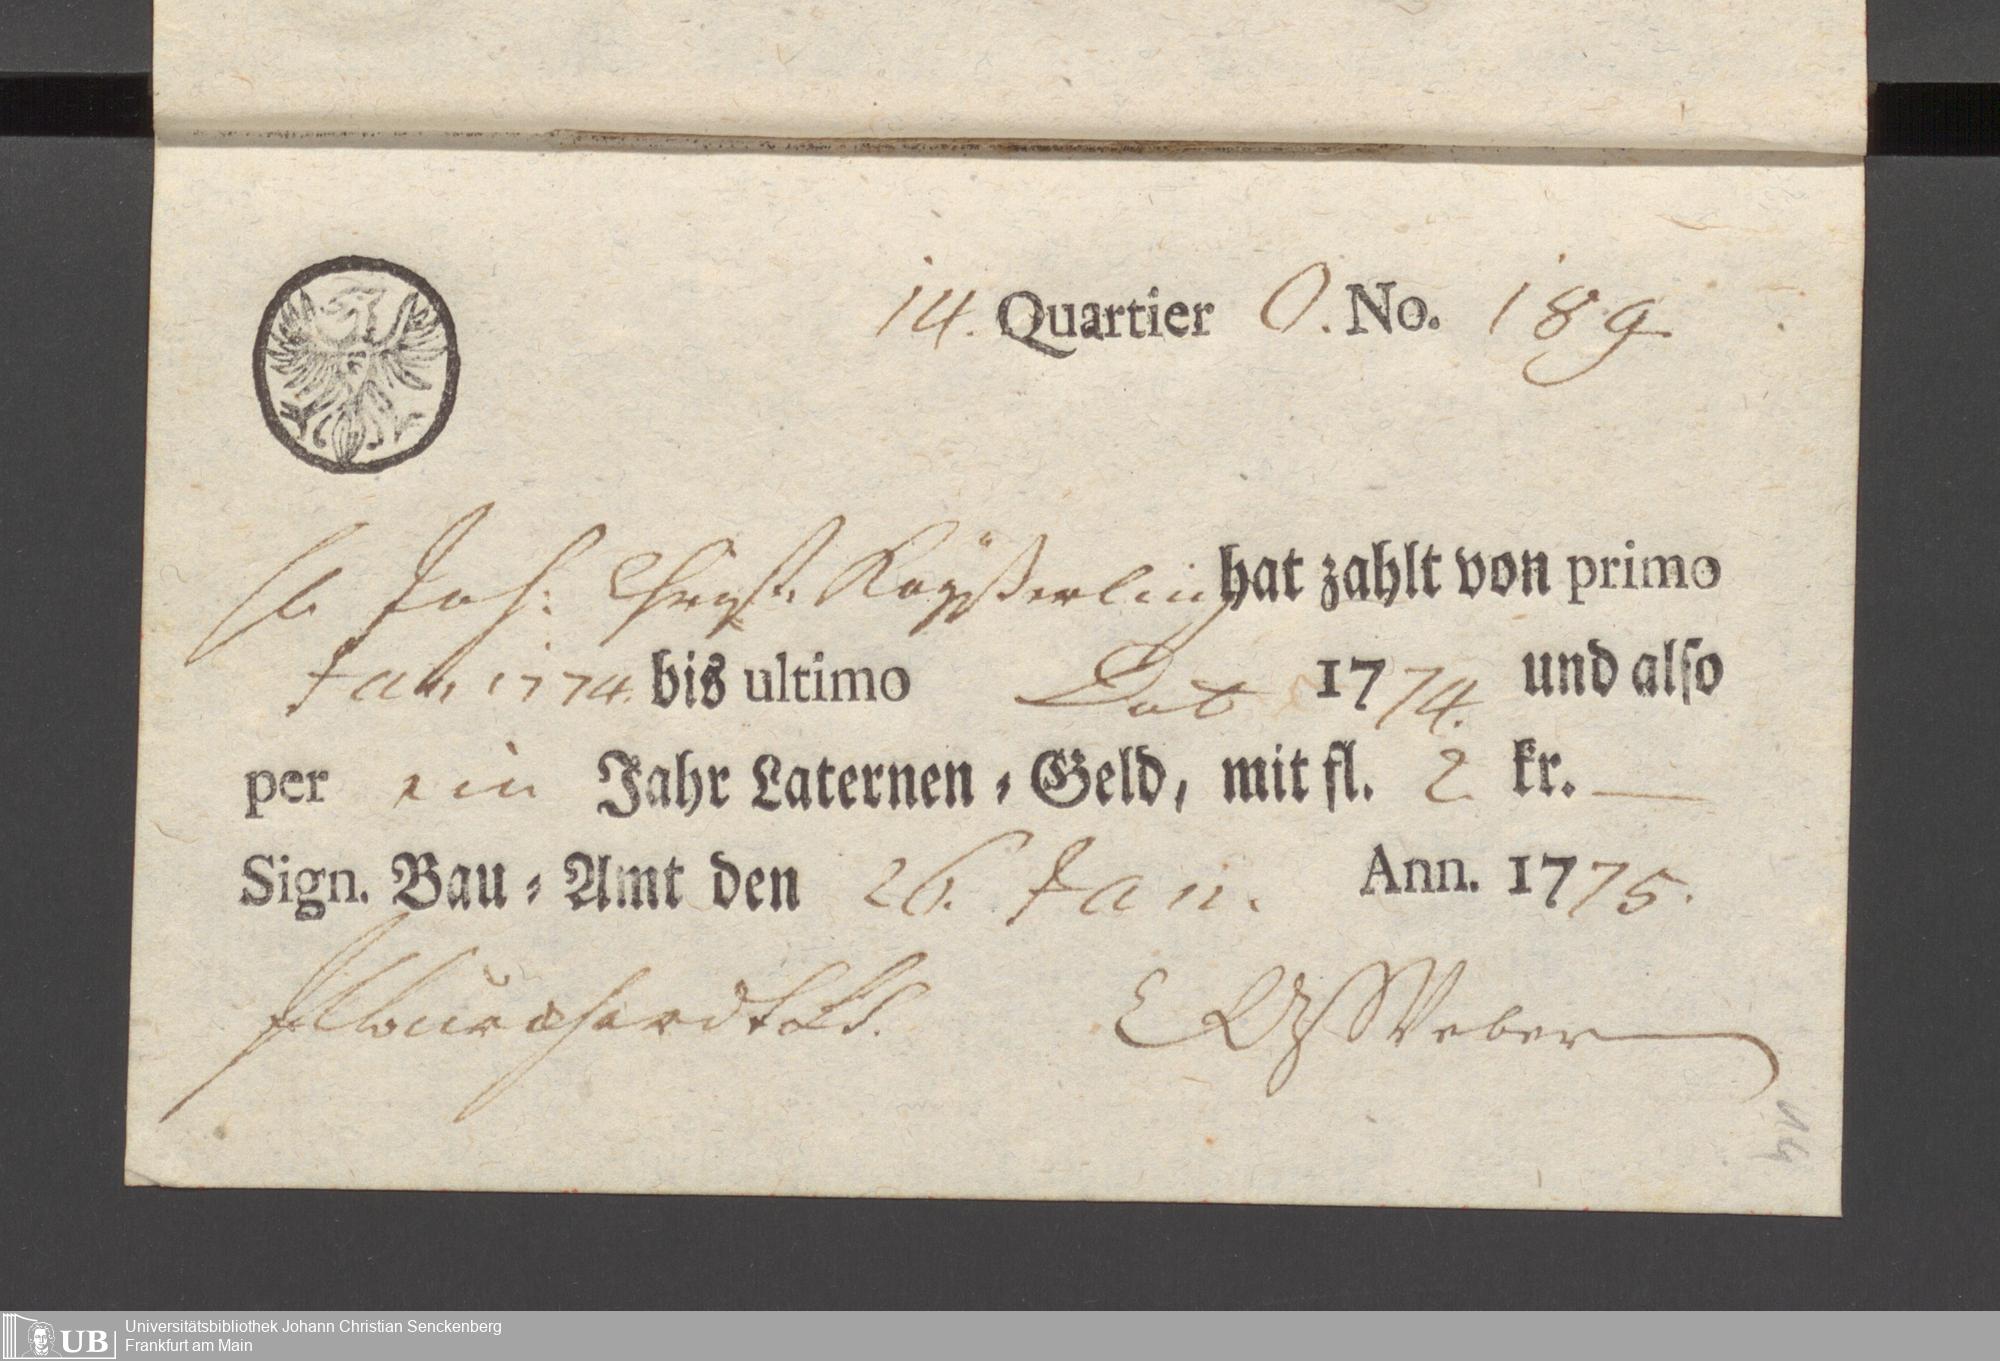 14. Quartier O. No. 189
H. Joh: Christ. Kayßerling hat zahlt von primo
Jan. 1774. bis ultimo 1774. und also
per ein Jahr Laternen-Geld, mit fl. 2 kr. —
Sign. Bau-Amt den 26. Jan. Ann. 1775.
Burckhardt Weber
114
UB
Universitätsbibliothek Johann Christian Senckenberg
Frankfurt am Main